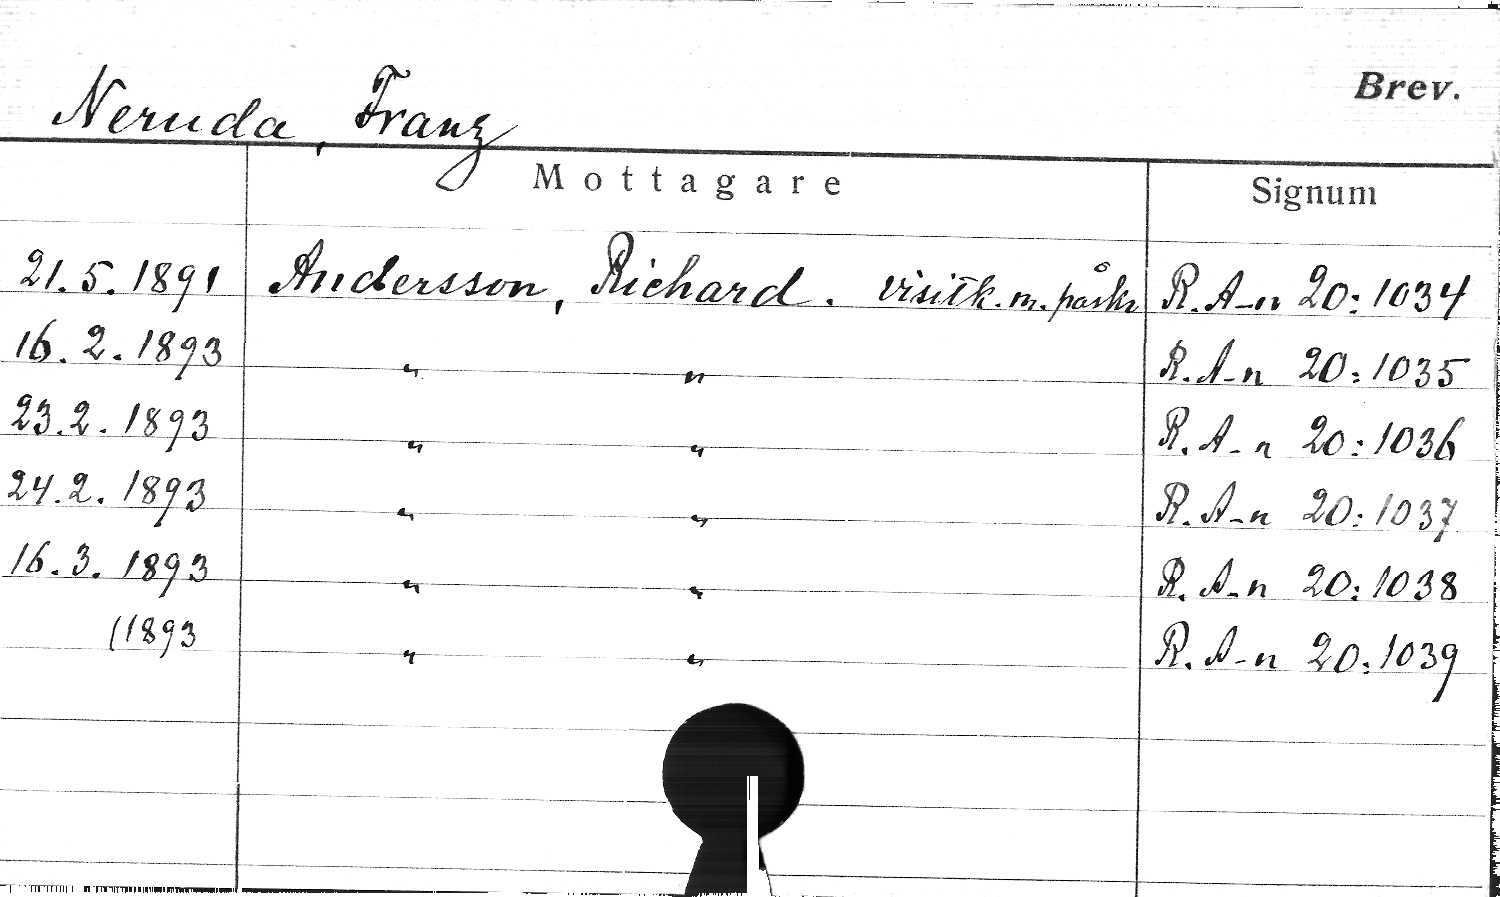 Brev.
Neruda, Franz
Mottagare Signum
21.5.1891 Andersson, Richard. visitk. m. påskr R. A-n 20:1034
16.2.1893 " " R. A-n 20:1035
23.2.1893 " " R. A-n 20:1036
24.2.1893 " " R. A-n 20:1037
16.3.1893 " " R. A-n 20:1038
(1893 " " R. A-n 20:1039